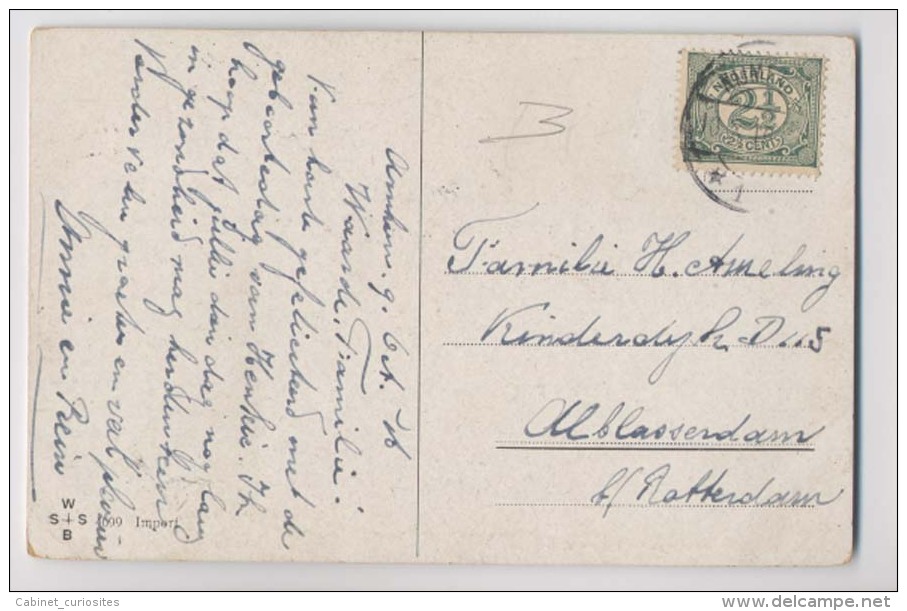 Arnhem. 9. Oct. 18
Waarde Familie.
Van harte gefeliciteerd met de
geboortedag van Henkie. Ik
hoop dat jullie dien dag nog lang
in gezondheid mag herdenken
Verder vele groeten en veel plezier
Annie en Rein
Familie H. Ameling
Kinderdijk D 115
Alblasserdam
b/ Rotterdam
NEDERLAND
2½
2½ CENT
W
S + S
B
1699 Import
Cabinet_curiosites
http://www.delcampe.net